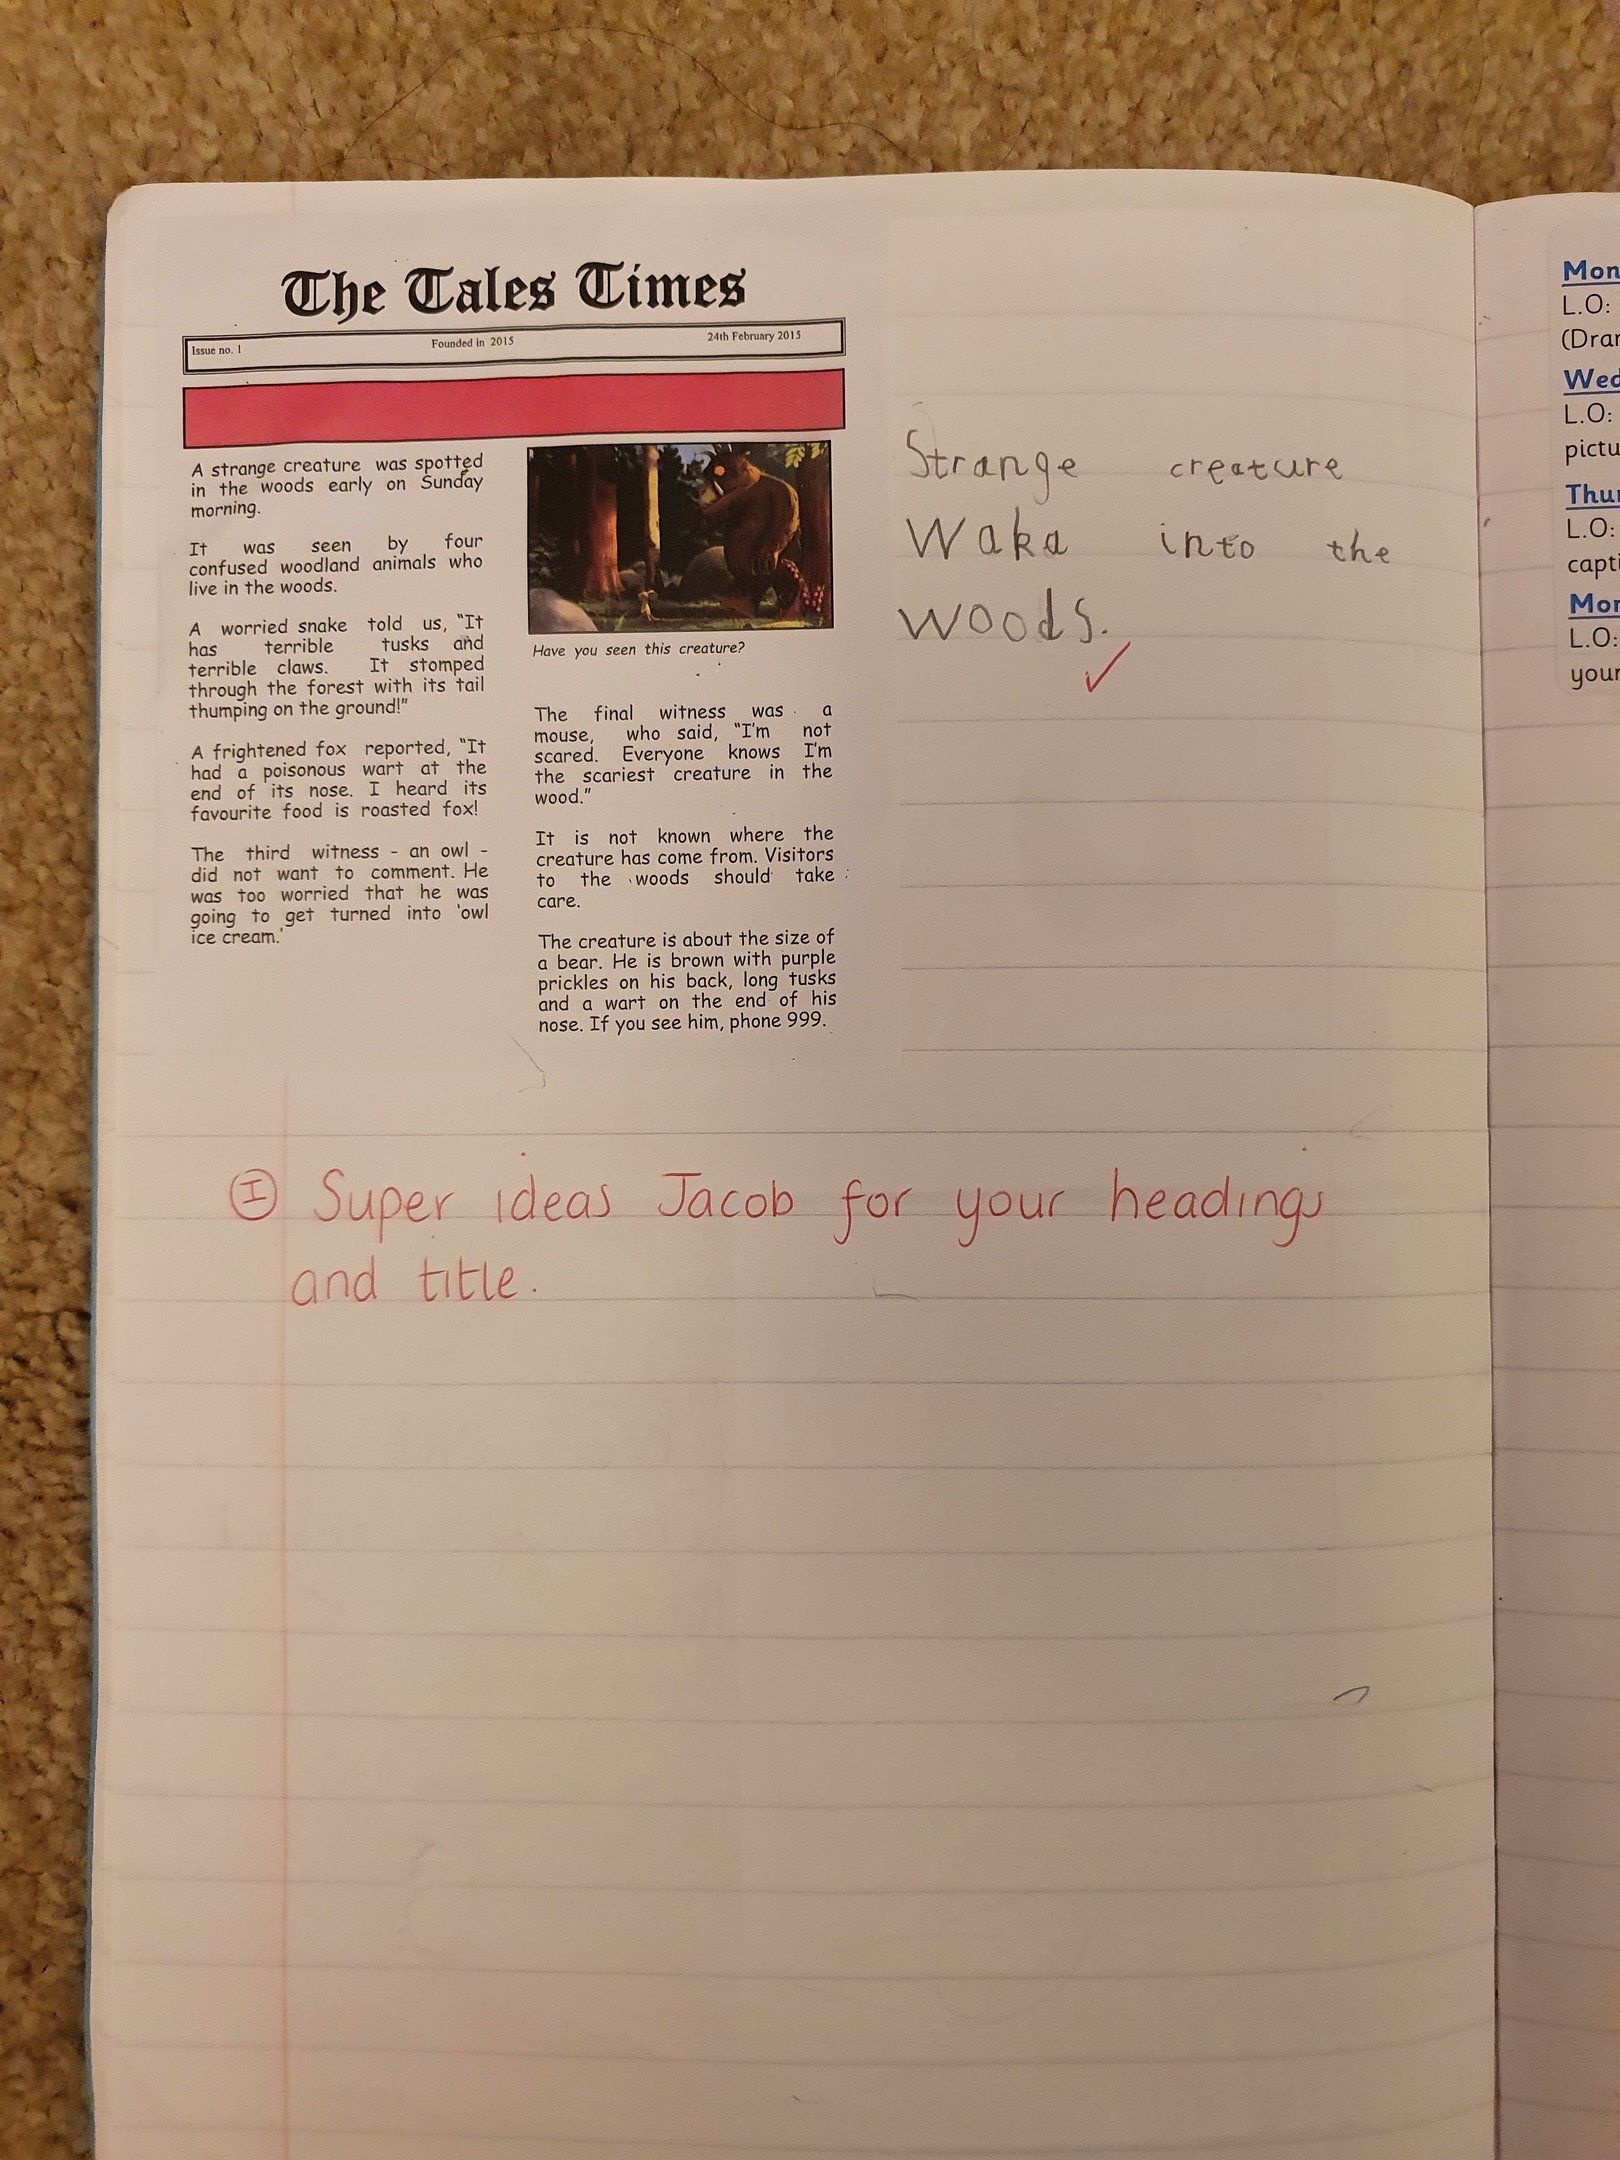 The Tales Times
Issue no. 1 Founded in 2015 24th February 2015
A strange creature was spotted
in the woods early on Sunday
morning.
It was seen by four
confused woodland animals who
live in the woods.
A worried snake told us, "It
has terrible tusks and
terrible claws. It stomped
through the forest with its tail
thumping on the ground!"
A frightened fox reported, "It
had a poisonous wart at the
end of its nose. I heard its
favourite food is roasted fox!
The third witness - an owl -
did not want to comment. He
was too worried that he was
going to get turned into 'owl
ice cream.'
Have you seen this creature?
The final witness was a
mouse, who said, "I'm not
scared. Everyone knows I'm
the scariest creature in the
wood."
It is not known where the
creature has come from. Visitors
to the woods should take
care.
The creature is about the size of
a bear. He is brown with purple
prickles on his back, long tusks
and a wart on the end of his
nose. If you see him, phone 999.
Strange creature
Waka into the
woods.
I Super ideas Jacob for your headings
and title.
Mon
L.O:
(Dra
Wed
L.O:
pictu
Thu
L.O:
capti
Mon
L.O:
your